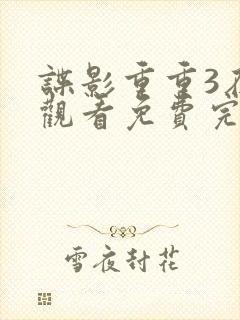 諜影重重3
觀看免費完
雪夜封花